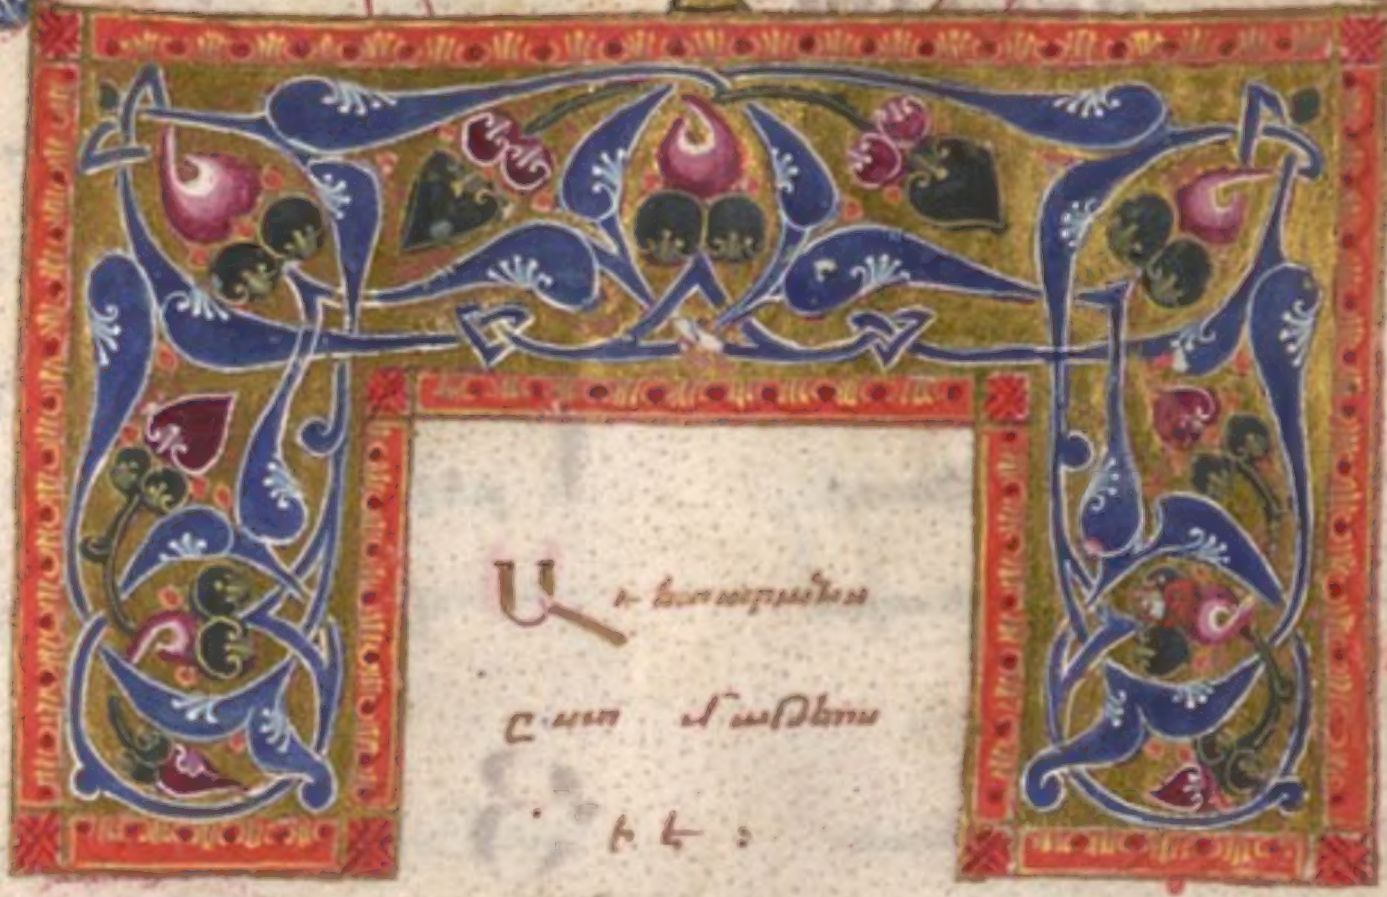 Աւետարան
ըստ մաթէոս
ի է :